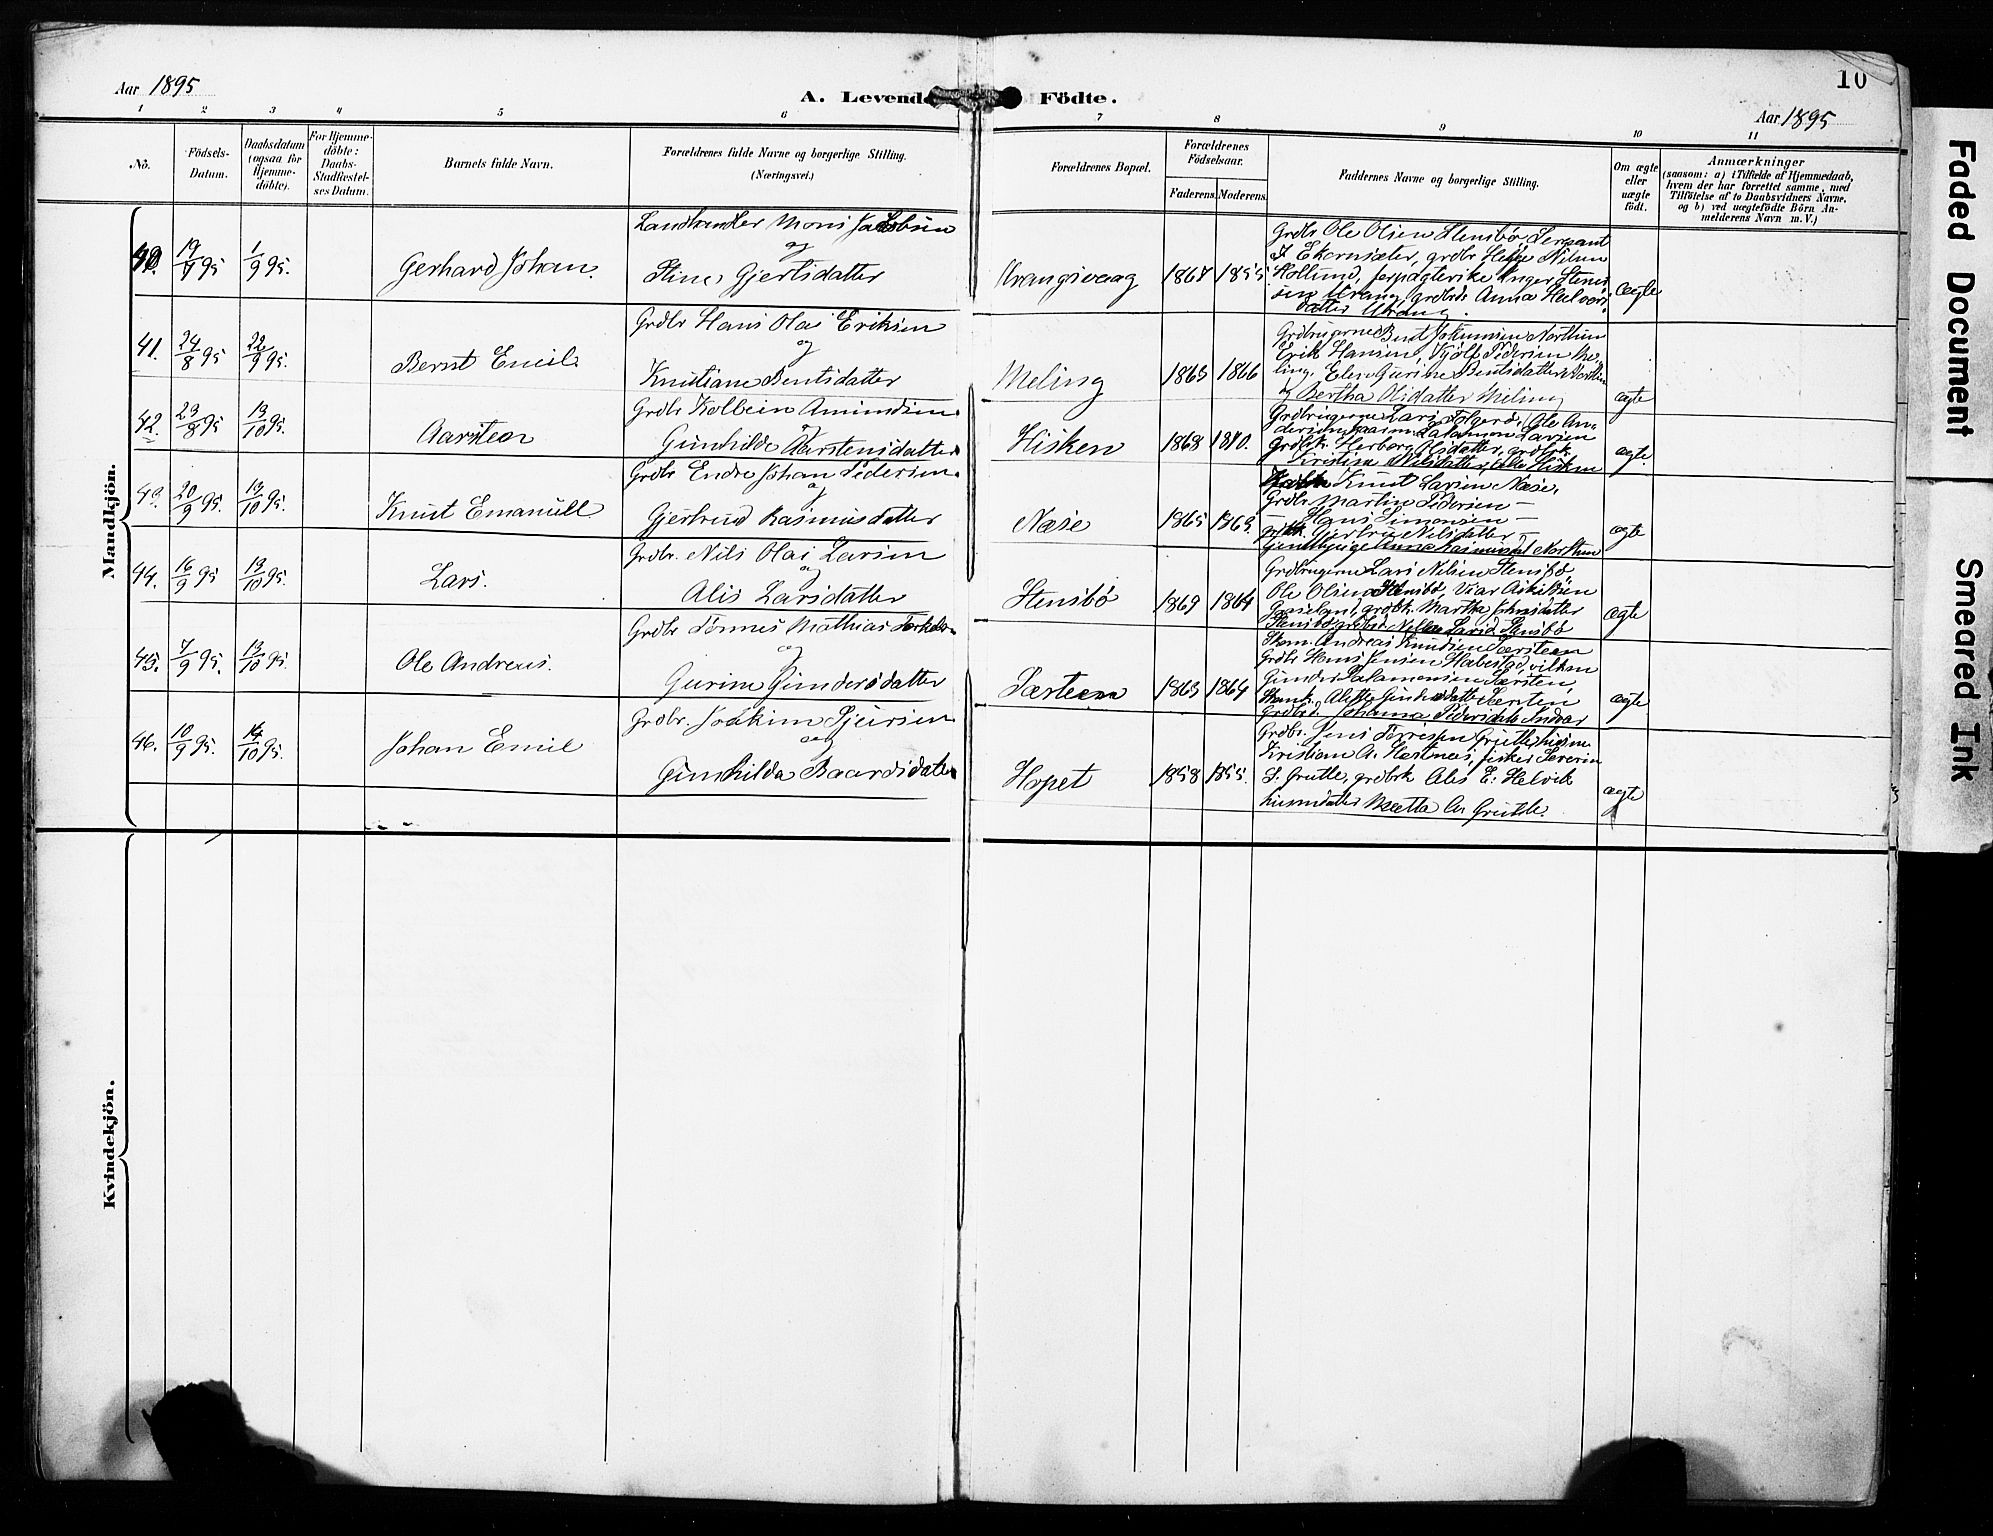 Aar 1895
A. Levende Födte.
10
Aar 1895
1 2 3 4 5 6 7 8 9 10 11
No.
Födsels-Datum.
Daabsdatum (ogsaa for Hjemme-döbte).
For Hjemme-döbte: Daabs-Stadfæstel-ses Datum.
Barnets fulde Navn.
Forældrenes fulde Navne og borgerlige Stilling.
(Næringsvei.)
Forældrenes Bopæl.
Forældrenes Födselsaar.
Faderens. Moderens.
Faddernes Navne og borgerlige Stilling.
Om ægte eller uægte födt.
Anmærkninger
(saasom: a) i Tilfælde af Hjemmedaab,
hvem der har forrettet samme, med
Tilföielse af to Daabsvidners Navne.
og b) ved uægtefödte Börn An-
melderens Navn m. V.)
Mandkjön.
40. 19/7 95 1/9 95. Gerhard Johan.
Landhandler Mons Jakobsen
og
Stine Gjertsdatter
Vrangsvaag 1867 1855
Grdbr Ole Olsen Stensbö, Sersant
I Ekornsæter, grdbr Helge Nilsen
Hollund, forpagterske Inger Stens
sen Vrang, grdbrds Anna Halvors
datter Vrang.
ægte
41. 24/8 95 22/9 95. Bernt Emil
Grdbr Hans Olai Eriksen
og
Kristiane Bentsdatter
Meling 1863 1866
Grdbrugerne Bent Johannesen Nordtun
Erik Hansen, Kjölf Pedersen Me-
ling, Elen Gurine Bentsdatter Nordtun
og Bertha Olsdatter Meling
ægte
42. 23/8 95 13/10 95. Aarstean
Grdbr Kolbein Amundsen
og
Gunhilde Aarstensdatter
Hisken 1868 1870.
Grdbrugerne Lars Folgerö, Ole An-
dersen, Salamon Larsen
Grdbrk. Herborg Olsdatter, grdbrk
Kristine Nilsdatter, alle Hisken
ægte.
43. 20/9 95. 13/10 95. Knut Emanuell
Grdbr Endre Johan Pedersen
og
Gjertrud Rasmusdatter
Næse 1865 1863.
Knut Larsen Næse,
Grdbr Martin Pedersen —
— Hans Simonsen —
Grdbrk. Gjertrud Nilsdatter —
Anne Rasmusdt Nordtun
ægte
44. 16/9 95 13/10 95. Lars.
Grdbr. Nils Olai Larsen
og
Alis Larsdatter
Stensbö 1869 1864
Grdbrugerne Lars Nilsen Stensbö
Ole Olsen Stensbö, Viar Askildsen
grdbrk. Martha Johnsdatter
Stensbö, Larsd. Stensbö
ægte
45. 7/9 95. 13/10 95. Ole Andreas.
Grdbr Tönnes Mathias Torkels-
og
Gurine Gundersdatter
Særsteen 1863 1864
Skom. Andreas Knudsen Særsteen
Grdbr Hans Jensen Habestad,
Gunder Salamonsen Særsten,
Alette Gundersdatter Særsten
Grdbrd. Johanna Pedersdatter Indvær
ægte
46. 10/9 95. 14/10 95. Johan Emil
Grdbr. Joakim Sjursen
og
Gunhilda Baardsdatter
Hopet 1858 1855.
Grdbr. Jens Torresen Grutle, husm
Kristian A. Hæstnæs, fisker Severin
S. Grutle, grdbrk Alis E. Helvik
husmdatter Mætta A. Grutle.
ægte
Kvindekjön.
Faded Document
Smeared Ink